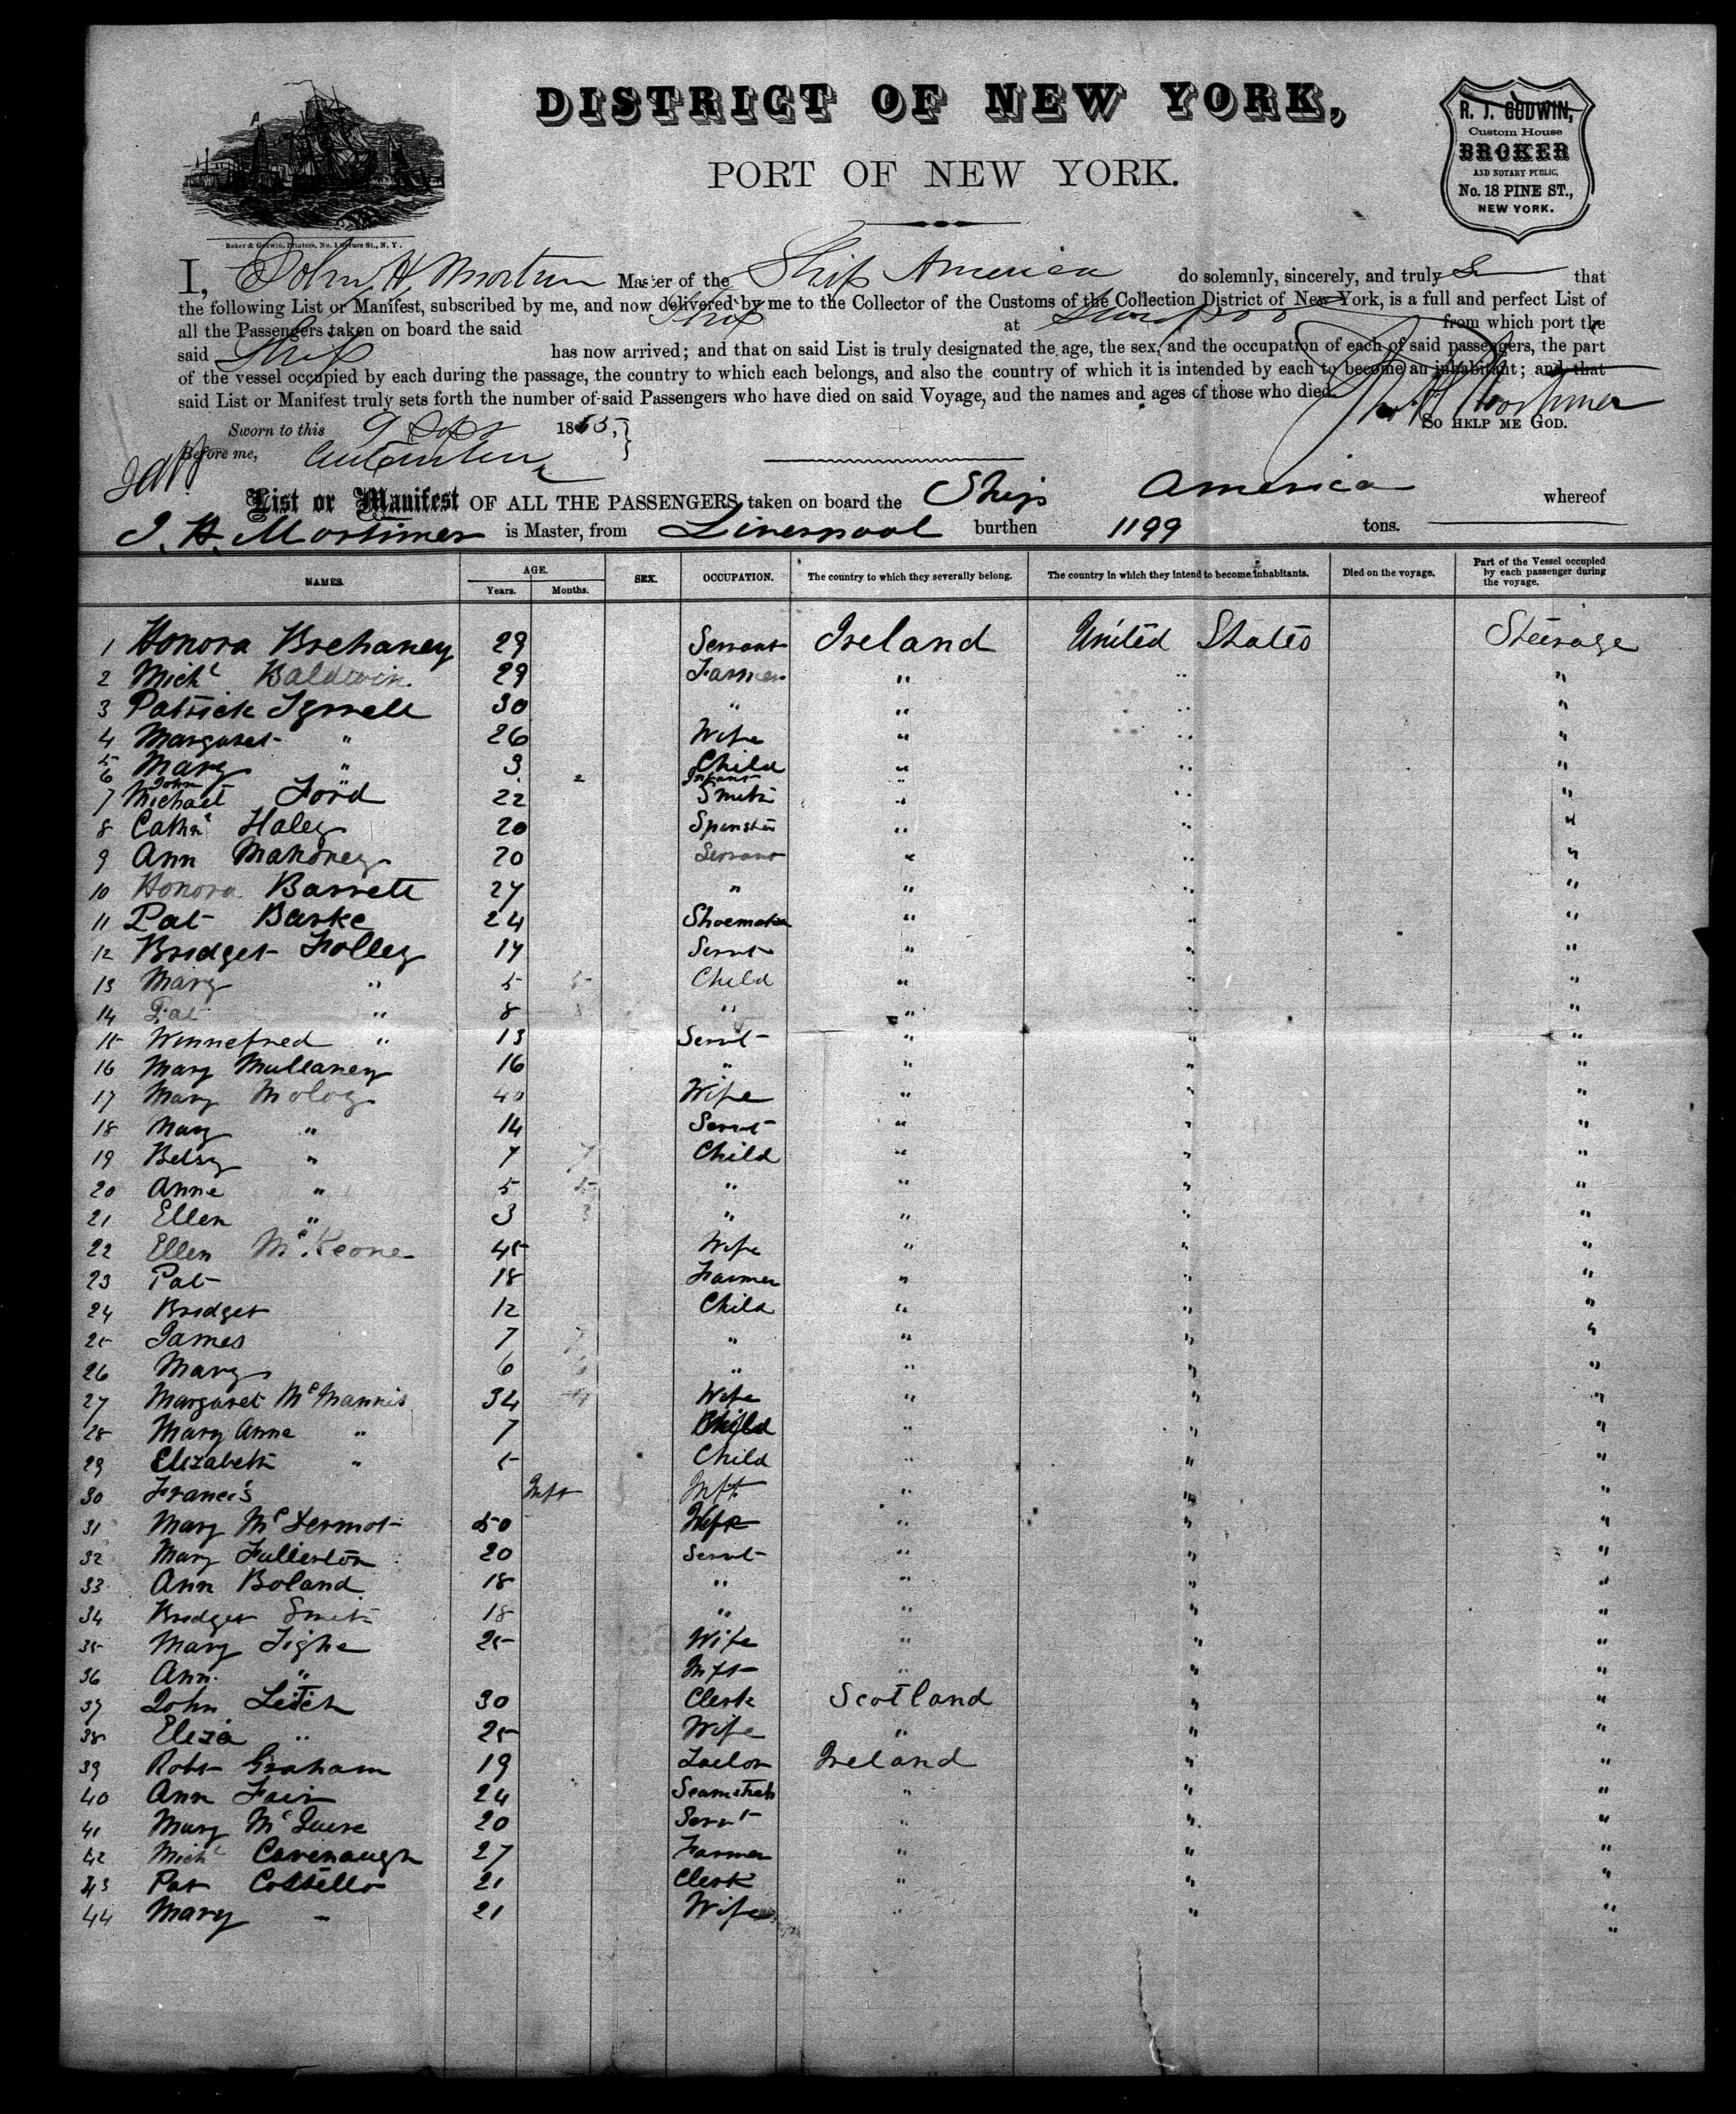 DISTRICT OF NEW YORK,
PORT OF NEW YORK.
R. J. GODWIN,
Custom House
BROKER
AND NOTARY PUBLIC,
No. 18 PINE ST.,
NEW YORK.
Baker & Godwin, Printers, No. 1 Spruce St., N. Y.
I, John H. Master of the Ship America do solemnly, sincerely, and truly that
the following List or Manifest, subscribed by me, and now delivered by me to the Collector of the Customs of the Collection District of New York, is a full and perfect List of
all the Passengers taken on board the said Ship at Liverpool from which port the
said Ship has now arrived; and that on said List is truly designated the age, the sex, and the occupation of each of said passengers, the part
of the vessel occupied by each during the passage, the country to which each belongs, and also the country of which it is intended by each to become an inhabitant; and that
said List or Manifest truly sets forth the number of said Passengers who have died on said Voyage, and the names and ages of those who died.
Mortimer
Sworn to this 9 18 SO HELP ME GOD.
Before me,
List or Manifest OF ALL THE PASSENGERS taken on board the Ship America whereof
J. H. Mortimer is Master, from Liverpool burthen 1199 tons.
NAMES. AGE. Years. Months. SEX. OCCUPATION. The country to which they severally belong. The country in which they intend to become inhabitants. Died on the voyage. Part of the Vessel occupied by each passenger during the voyage.
1 Honora Brehaney 29 Servant Ireland United States Steerage
2 Michl Baldwin 29 Farmer " " "
3 Patrick Tyrrell 30 " " " "
4 Margaret " 26 Wife " " "
5 Mary " 3 Child " " "
6 John " 2 Infant " "
7 Michael Ford 22 Smith " " "
8 Cathne Haley 20 Spinster " " "
9 Ann Mahoney 20 Servant " " "
10 Honora Barrett 27 " " " "
11 Pat Burke 24 Shoemaker " " "
12 Bridget Folley 17 Servt " " "
13 Mary " 5 5 Child " " "
14 Pat " 8 8 " " " "
15 Winnefred " 13 Servt " " "
16 Mary Mullaney 16 " " " "
17 Mary Moloy 40 Wife " " "
18 Mary " 14 Servt " " "
19 Betsy " 7 7 Child " " "
20 Anne " 5 5 " " " "
21 Ellen " 3 3 " " " "
22 Ellen McKeone 45 Wife " " "
23 Pat 18 Farmer " " "
24 Bridget 12 Child " " "
25 James 7 7 " " " "
26 Mary 6 6 " " " "
27 Margaret McMannis 34 Wife " " "
28 Mary Anne " 7 Child " " "
29 Elizabeth " 5 Child " " "
30 Francis Inft Inft " " "
31 Mary McDermot 50 Wife " " "
32 Mary Fullerton 20 Servt " " "
33 Ann Boland 18 " " " "
34 Bridget Smith 18 " " " "
35 Mary Tighe 25 Wife " " "
36 Ann " Inft " " "
37 John Leitch 30 Clerk Scotland " "
38 Eliza " 25 Wife " " "
39 Robt Graham 19 Tailor Ireland " "
40 Ann Fair 24 Seamstress " " "
41 Mary 20 Servt " " "
42 Michl Cavenaugh 27 Farmer " " "
43 Pat Costello 21 Clerk " " "
44 Mary " 21 Wife " " "